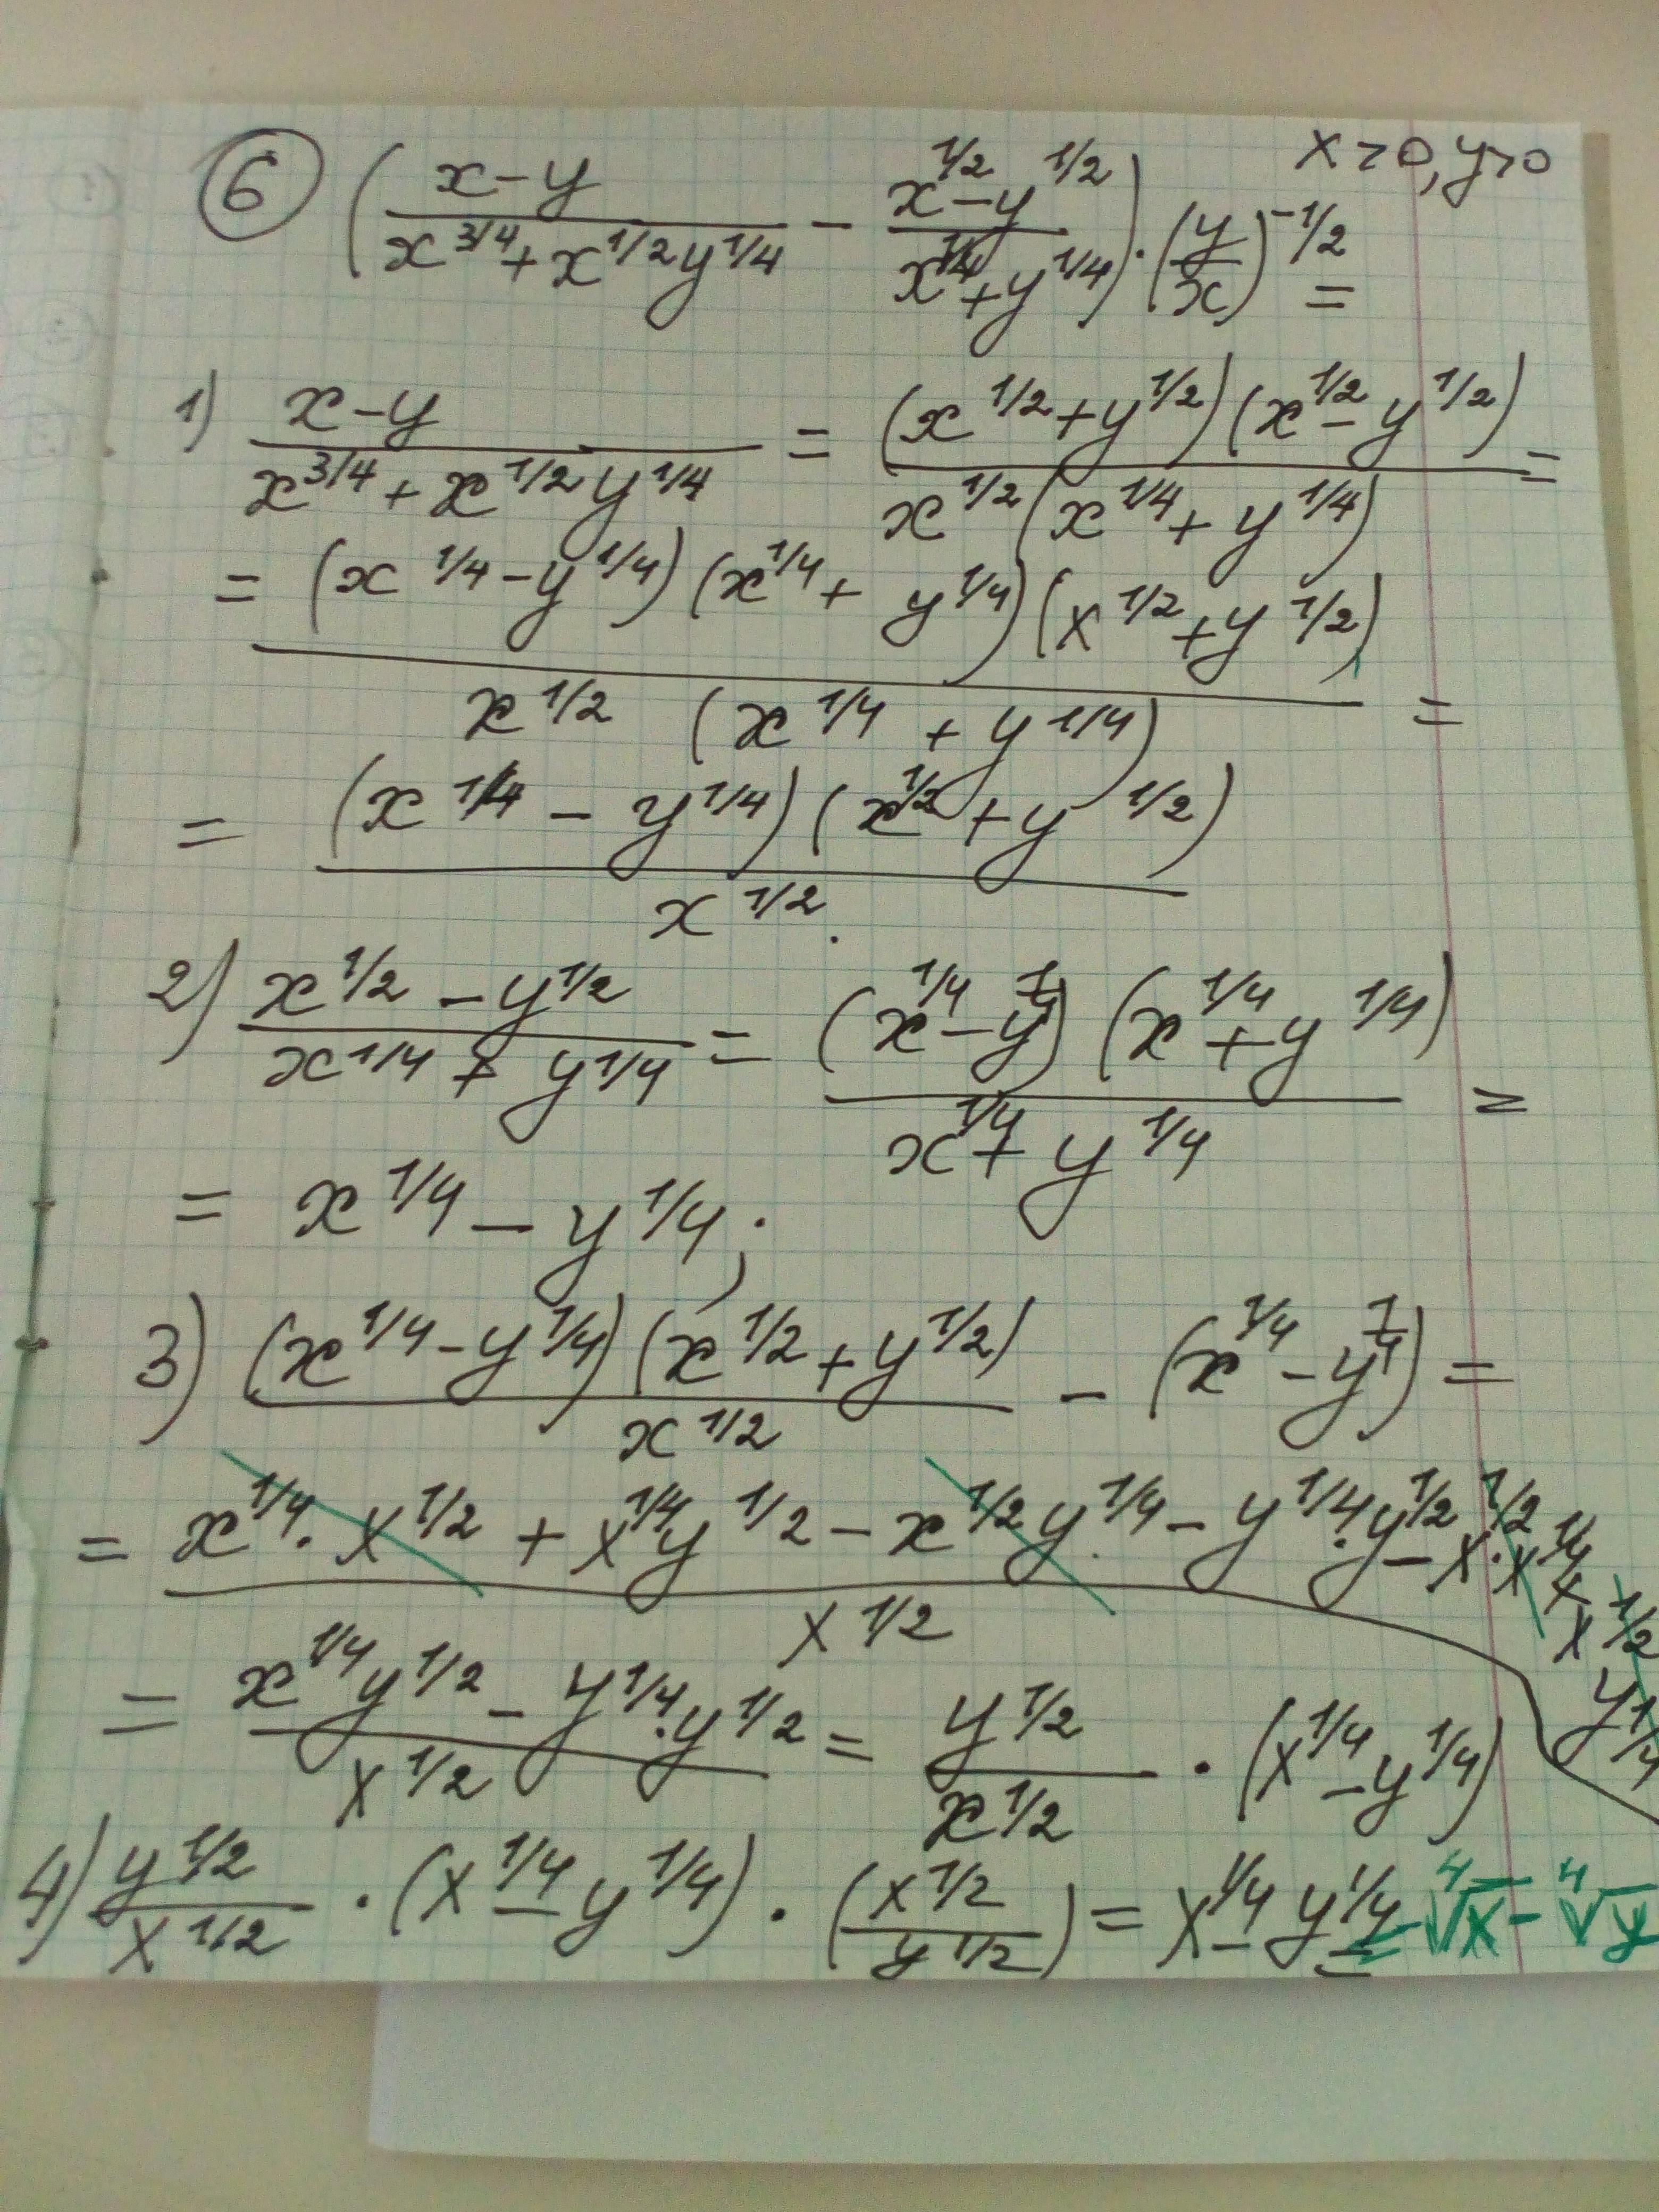 ⑥ ( (x-y)/(x^{3/4}+x^{1/2}y^{1/4}) - (x^{1/2}-y^{1/2})/(x^{1/4}+y^{1/4}) ) · (y/x)^{-1/2} =   x>0, y>0
1) (x-y)/(x^{3/4}+x^{1/2}y^{1/4}) = ((x^{1/2}+y^{1/2})(x^{1/2}-y^{1/2}))/(x^{1/2}(x^{1/4}+y^{1/4})) =
= ((x^{1/4}-y^{1/4})(x^{1/4}+y^{1/4})(x^{1/2}+y^{1/2}))/(x^{1/2}(x^{1/4}+y^{1/4})) =
= ((x^{1/4}-y^{1/4})(x^{1/2}+y^{1/2}))/x^{1/2}.
2) (x^{1/2}-y^{1/2})/(x^{1/4}+y^{1/4}) = ((x^{1/4}-y^{1/4})(x^{1/4}+y^{1/4}))/(x^{1/4}+y^{1/4}) =
= x^{1/4}-y^{1/4};
3) ((x^{1/4}-y^{1/4})(x^{1/2}+y^{1/2}))/x^{1/2} - (x^{1/4}-y^{1/4}) =
= (x^{1/4}·x^{1/2}+x^{1/4}y^{1/2}-x^{1/2}y^{1/4}-y^{1/4}·y^{1/2}-x^{1/2}·x^{1/4}+x^{1/2}y^{1/4})/x^{1/2}
= (x^{1/4}y^{1/2}-y^{1/4}·y^{1/2})/x^{1/2} = y^{1/2}/x^{1/2} · (x^{1/4}-y^{1/4})
4) y^{1/2}/x^{1/2} · (x^{1/4}-y^{1/4}) · (x^{1/2}/y^{1/2}) = x^{1/4}-y^{1/4} = ∜x - ∜y